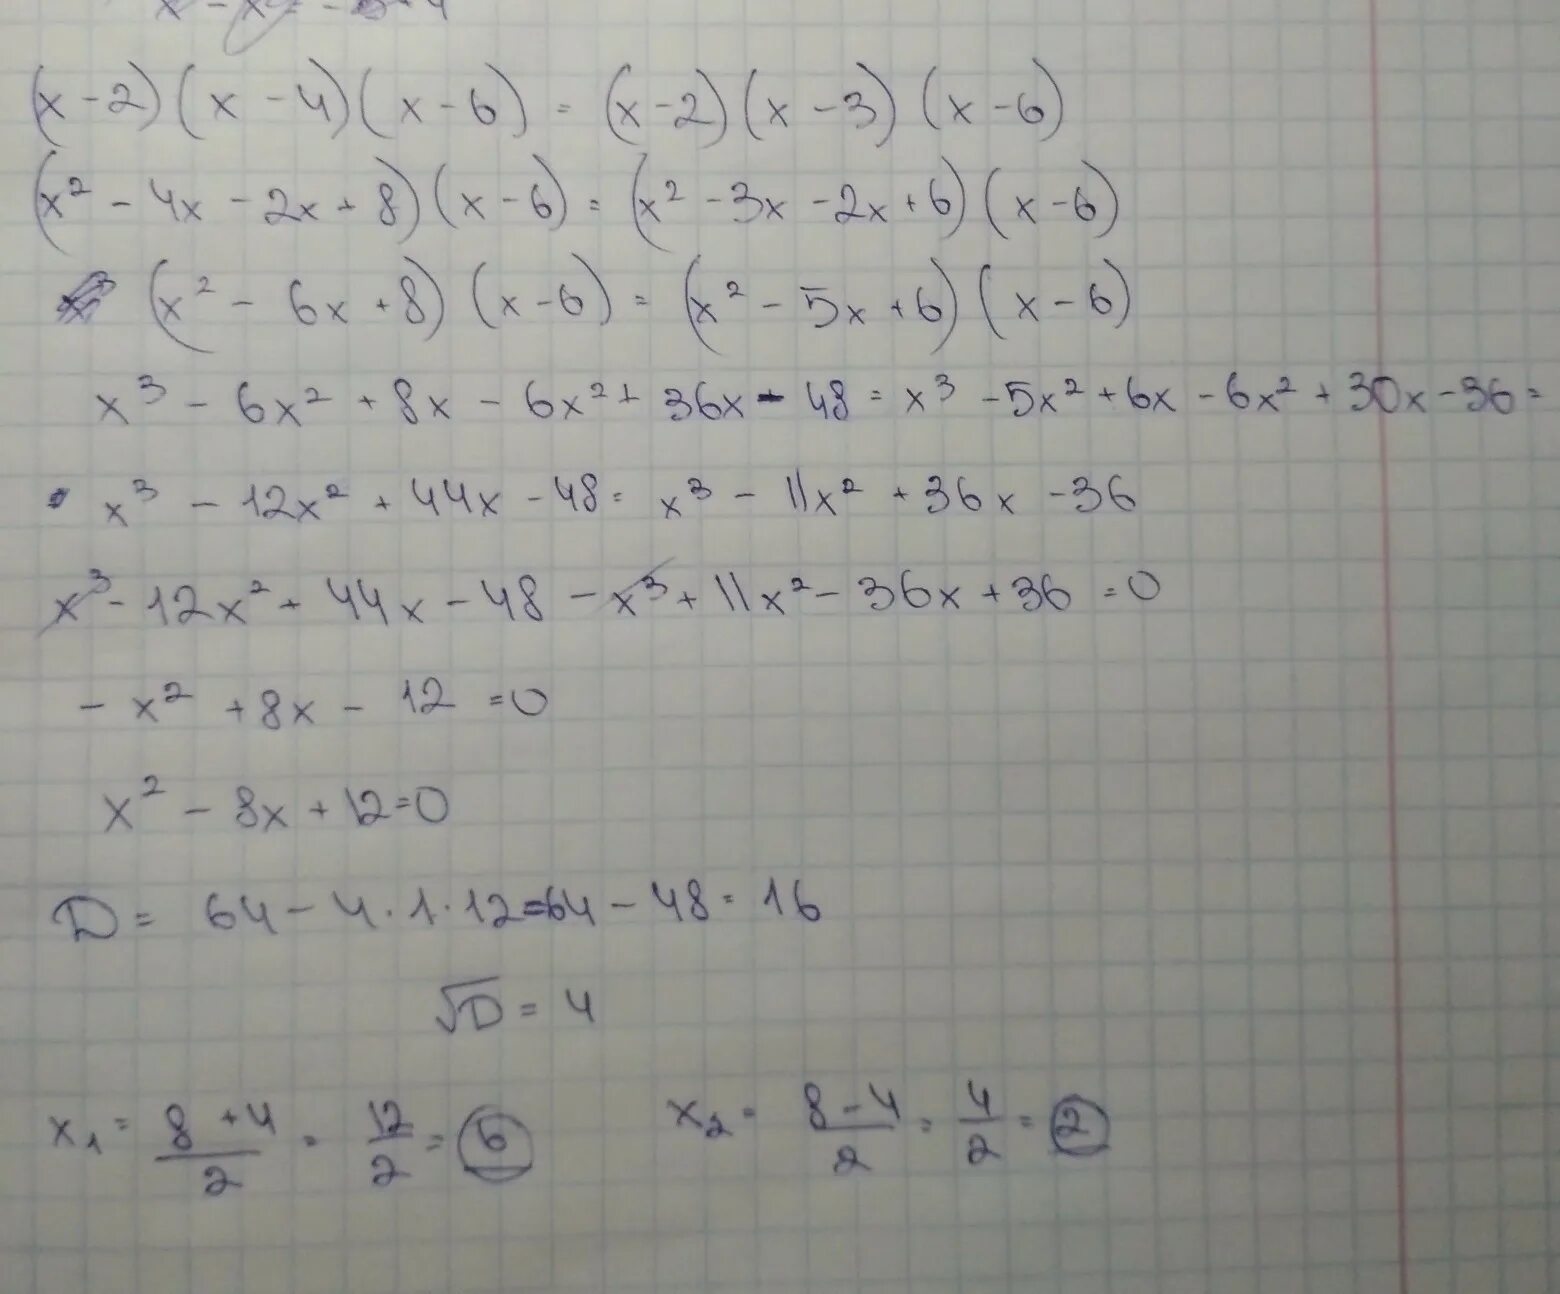 (x - 2)(x - 4)(x - 6) = (x - 2)(x - 3)(x - 6)
(x² - 4x - 2x + 8)(x - 6) = (x² - 3x - 2x + 6)(x - 6)
(x² - 6x + 8)(x - 6) = (x² - 5x + 6)(x - 6)
x³ - 6x² + 8x - 6x² + 36x - 48 = x³ - 5x² + 6x - 6x² + 30x - 36 =
x³ - 12x² + 44x - 48 = x³ - 11x² + 36x - 36
x³ - 12x² + 44x - 48 - x³ + 11x² - 36x + 36 = 0
- x² + 8x - 12 = 0
x² - 8x + 12 = 0
D = 64 - 4 · 1 · 12 = 64 - 48 = 16
√D = 4
x₁ = (8 + 4)/2 = 12/2 = 6 x₂ = (8 - 4)/2 = 4/2 = 2